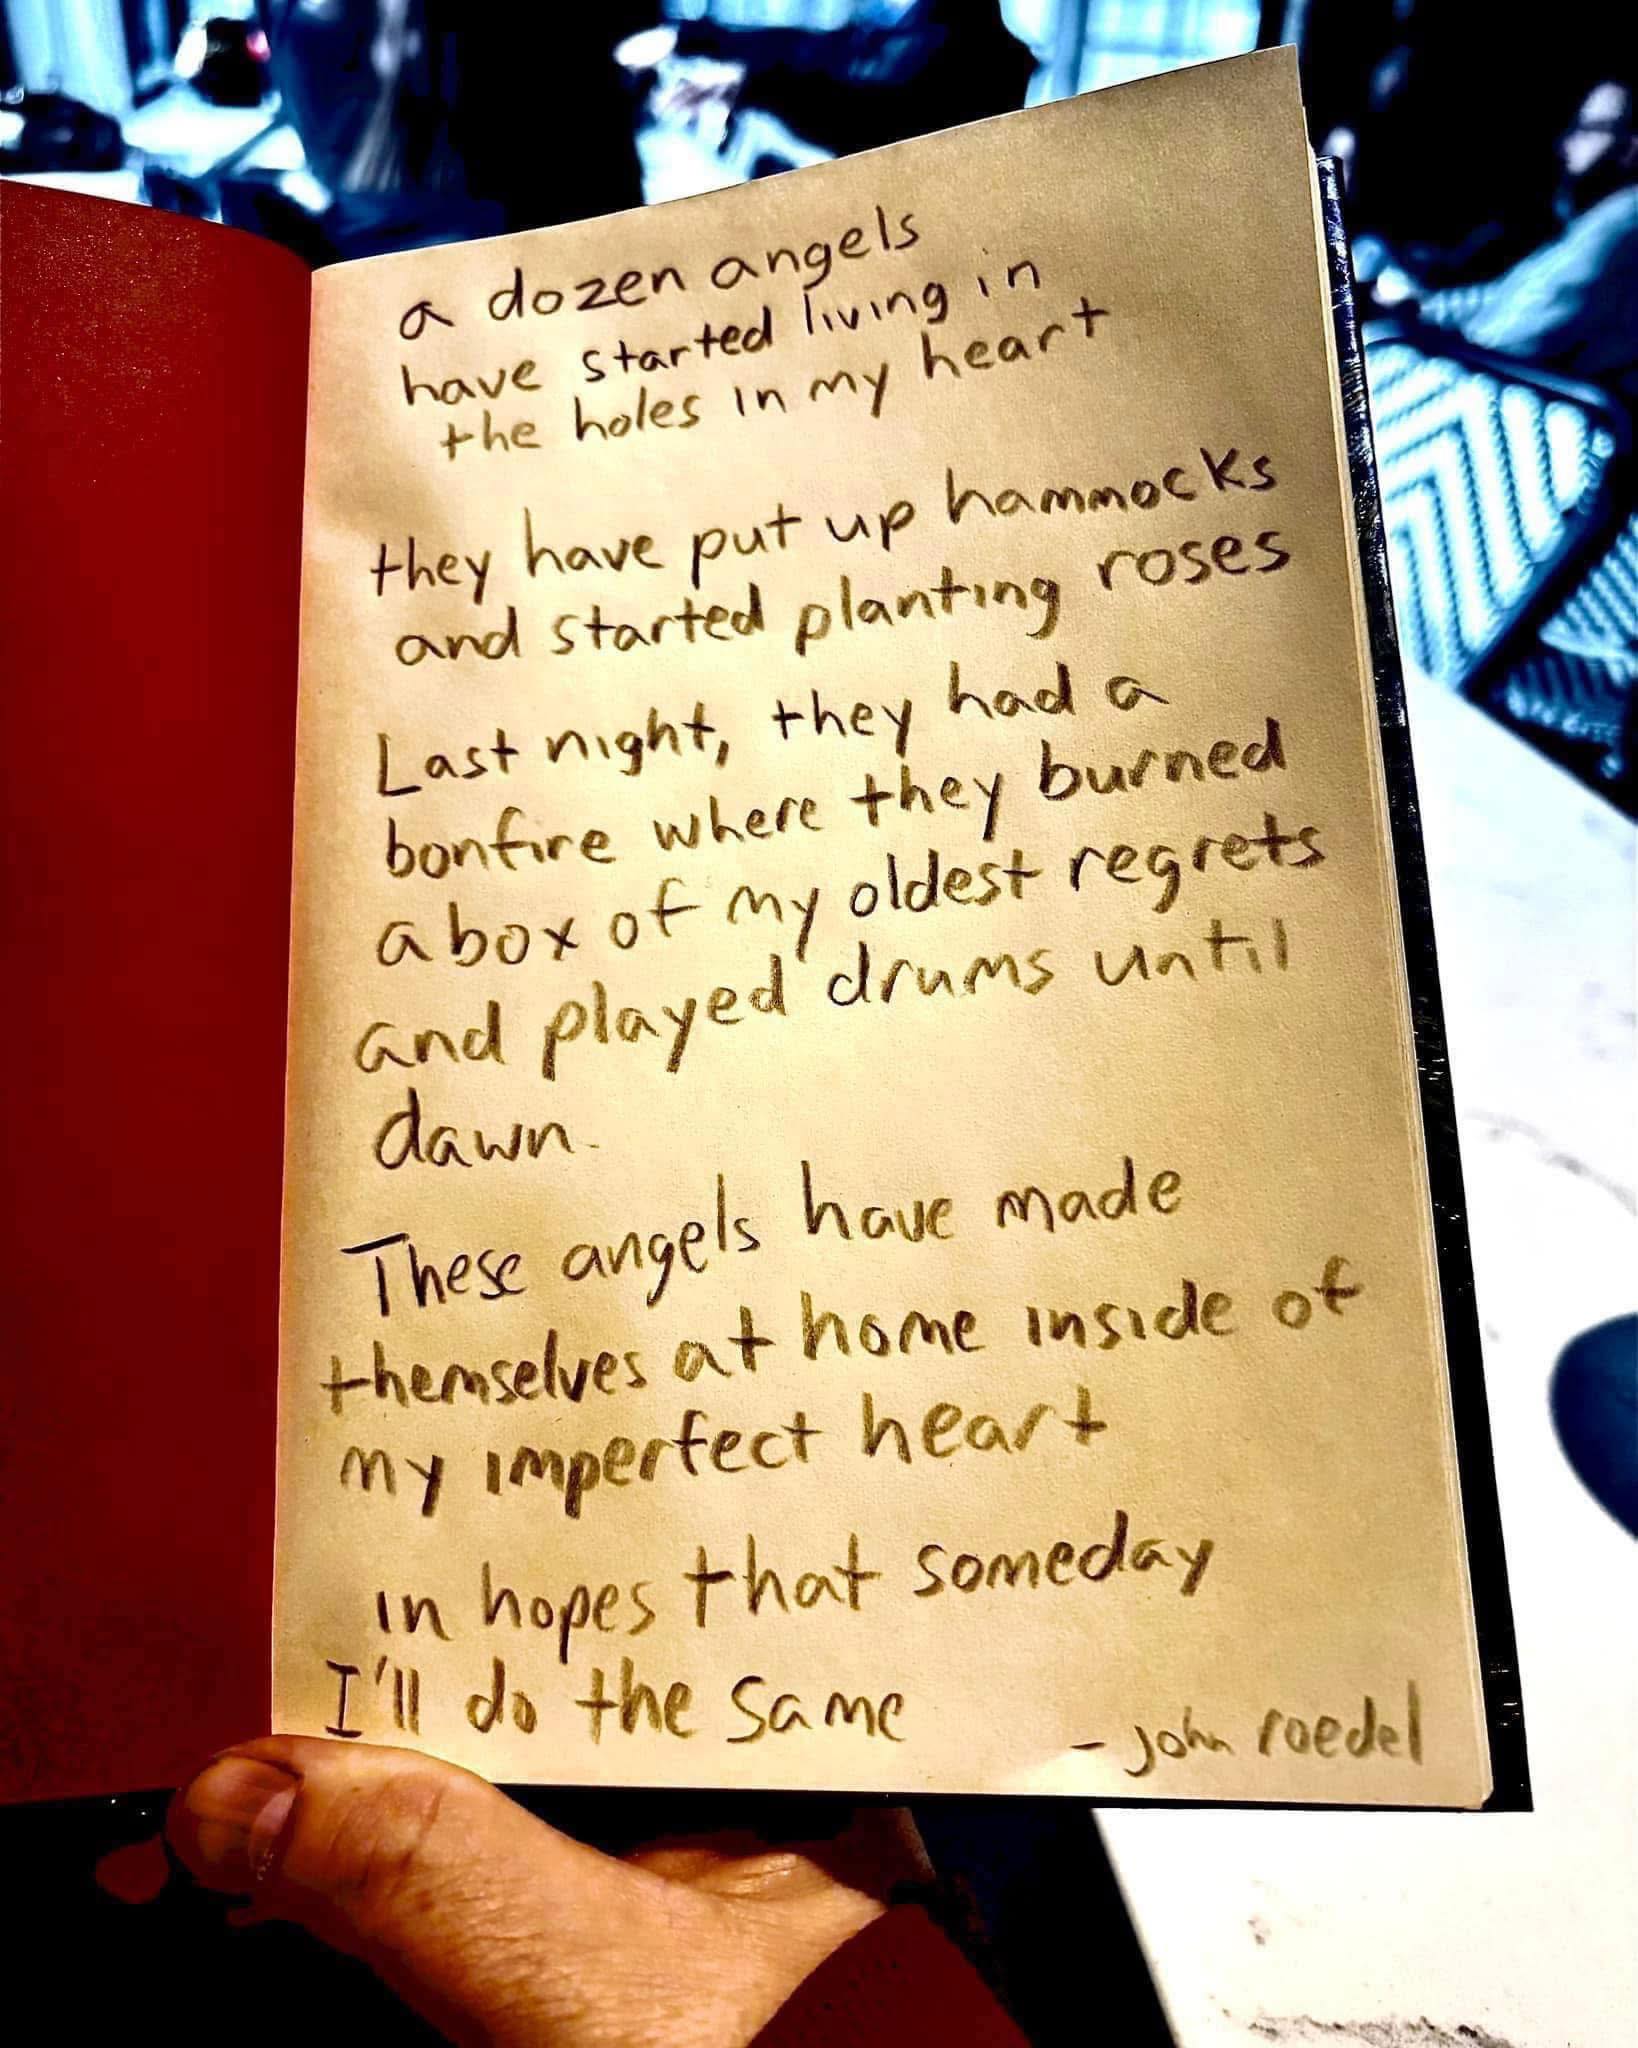 a dozen angels
have started living in
the holes in my heart
they have put up hammocks
and started planting roses
Last night, they had a
bonfire where they burned
a box of my oldest regrets
and played drums until
dawn.
These angels have made
themselves at home inside of
my imperfect heart
in hopes that someday
I'll do the same
- john roedel